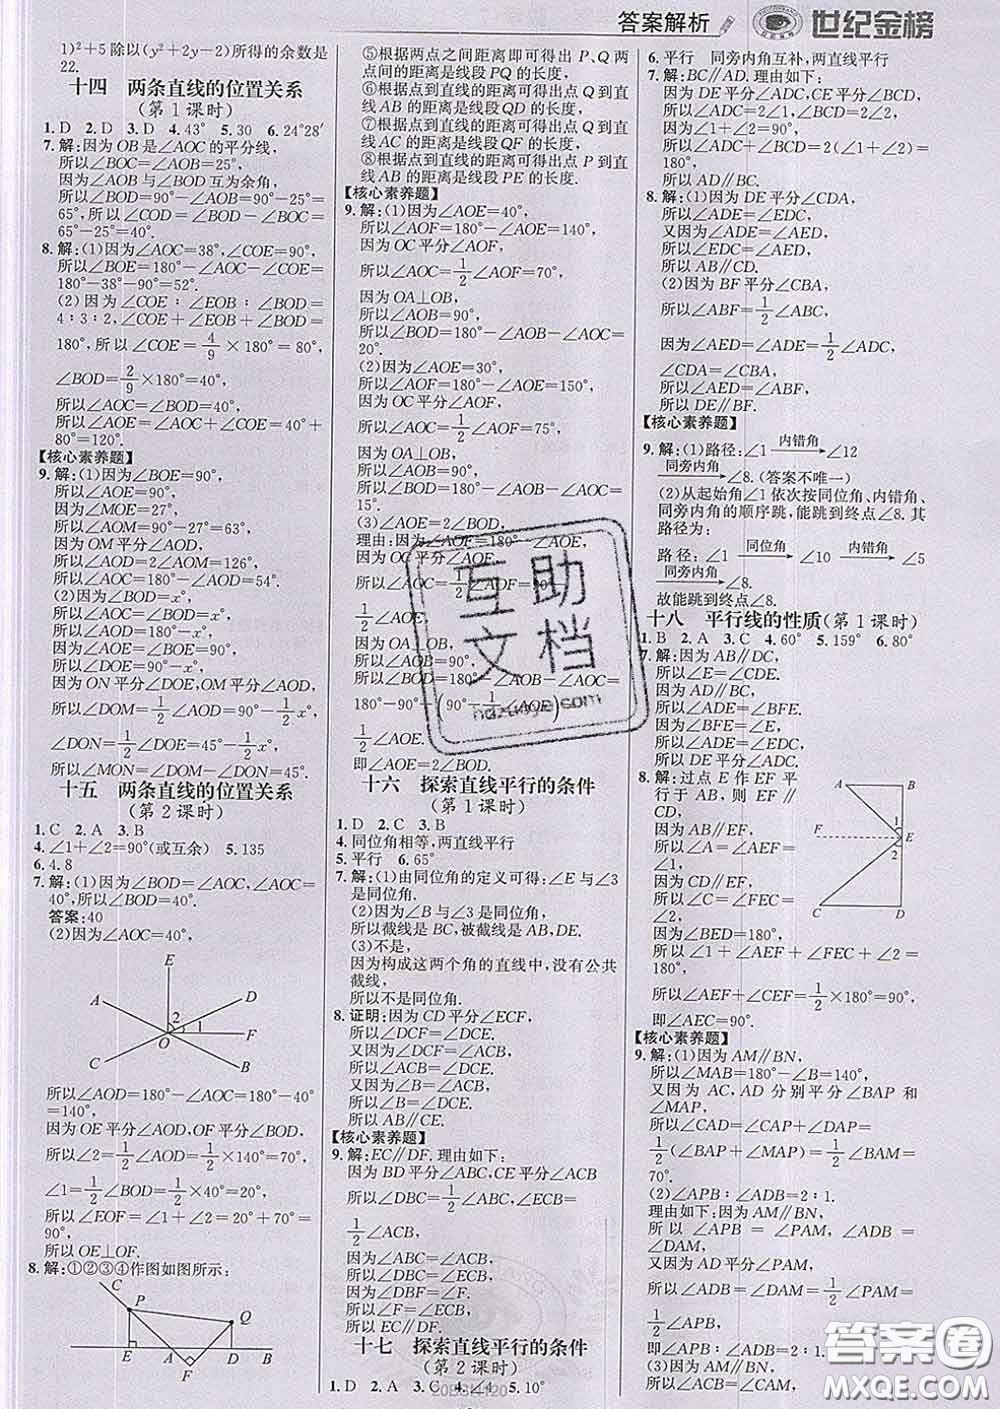 答案解析
世纪金榜
1)²+5除以(y²+2y-2)所得的余数是
22.
十四 两条直线的位置关系
(第1课时)
1.D 2.D 3.D 4.43° 5.30 6.24°28′
7.解:因为OB是∠AOC的平分线,
所以∠BOC=∠AOB=25°,
因为∠AOB与∠BOD互为余角,
所以∠BOD=90°-∠AOB=90°-25°=
65°,所以∠COD=∠BOD-∠BOC=
65°-25°=40°.
8.解:(1)因为∠AOC=38°,∠COE=90°,
所以∠BOE=180°-∠AOC-∠COE=
180°-38°-90°=52°.
(2)因为∠COE∶∠EOB∶∠BOD=
4∶3∶2,∠COE+∠EOB+∠BOD=
180°,所以∠COE=4/9×180°=80°,
∠BOD=2/9×180°=40°,
所以∠AOC=∠BOD=40°,
所以∠AOE=∠AOC+∠COE=40°+
80°=120°.
【核心素养题】
9.解:(1)因为∠BOE=90°,
所以∠AOE=90°,
因为∠MOE=27°,
所以∠AOM=90°-27°=63°,
因为OM平分∠AOD,
所以∠AOD=2∠AOM=126°,
所以∠AOC=180°-∠AOD=54°.
(2)因为∠BOD=x°,
所以∠AOD=180°-x°,
因为∠BOE=90°,
所以∠DOE=90°-x°,
因为ON平分∠DOE,OM平分∠AOD,
所以∠DOM=1/2∠AOD=90°-1/2x°,
∠DON=1/2∠DOE=45°-1/2x°,
所以∠MON=∠DOM-∠DON=45°.
十五 两条直线的位置关系
(第2课时)
1.C 2.A 3.B
4.∠1+∠2=90°(或互余) 5.135
6.4.8
7.解:(1)因为∠BOD=∠AOC,∠AOC=
40°,所以∠BOD=40°.
答案:40
(2)因为∠AOC=40°,
E
A
D
2
1
F
O
C
B
所以∠AOD=180°-∠AOC=180°-40°
=140°,
因为OE平分∠AOD,OF平分∠BOD,
所以∠2=1/2∠AOD=1/2×140°=70°,
∠1=1/2∠BOD=1/2×40°=20°,
所以∠EOF=∠1+∠2=20°+70°=
90°,
所以OE⊥OF.
8.解:①②③④作图如图所示:
C
P
Q
E
A
D
B
F
⑤根据两点之间的距离即可得出P、Q两
点间的距离是线段PQ的长度,
⑥根据点到直线的距离可得出点Q到直
线AB的距离是线段QD的长度,
⑦根据点到直线的距离可得出点Q到直
线AC的距离是线段QF的长度,
⑧根据点到直线的距离可得出点P到直
线AB的距离是线段PE的长度.
【核心素养题】
9.解:(1)因为∠AOE=40°,
所以∠AOF=180°-∠AOE=140°,
因为OC平分∠AOF,
所以∠AOC=1/2∠AOF=70°,
因为OA⊥OB,
所以∠AOB=90°,
所以∠BOD=180°-∠AOB-∠AOC=
20°.
(2)因为∠AOE=30°,
所以∠AOF=180°-∠AOE=150°,
因为OC平分∠AOF,
所以∠AOC=1/2∠AOF=75°,
因为OA⊥OB,
所以∠AOB=90°,
所以∠BOD=180°-∠AOB-∠AOC=
15°.
(3)∠AOE=2∠BOD,
理由:因为∠AOF=180°-∠AOE,
因为OC平分∠AOF,
所以∠AOC=1/2∠AOF=90°-
1/2∠AOE,
因为OA⊥OB,
所以∠AOB=90°,
所以∠BOD=180°-∠AOB-∠AOC=
180°-90°-(90°-1/2∠AOE)=
1/2∠AOE.
即∠AOE=2∠BOD.
十六 探索直线平行的条件
(第1课时)
1.D 2.C 3.B
4.同位角相等,两直线平行
5.平行 6.65°
7.解:(1)由同位角的定义可得:∠E与∠3
是同位角.
(2)因为∠B与∠3是同位角,
所以截线是BC,被截线是AB,DE.
(3)不是,
因为构成这两个角的直线中,没有公共
截线,
所以不是同位角.
8.证明:因为CD平分∠ECF,
所以∠DCF=∠DCE.
又因为∠DCF=∠ACB,
所以∠DCE=∠ACB.
又因为∠B=∠ACB,
所以∠B=∠DCE.
所以AB∥CE.
【核心素养题】
9.解:EC∥DF.理由如下:
因为BD平分∠ABC,CE平分∠ACB
所以∠DBC=1/2∠ABC,∠ECB=
1/2∠ACB,
因为∠ABC=∠ACB,
所以∠DBC=∠ECB,
因为∠DBF=∠F,
所以∠F=∠ECB,
所以EC∥DF.
十七 探索直线平行的条件
(第2课时)
1.D 2.A 3.C 4.∠4 5.10°
6.平行 同旁内角互补,两直线平行
7.解:BC∥AD.理由如下:
因为DE平分∠ADC,CE平分∠BCD,
所以∠ADC=2∠1,∠BCD=2∠2,
因为∠1+∠2=90°,
所以∠ADC+∠BCD=2(∠1+∠2)=
180°,
所以AD∥BC.
8.解:(1)因为DE平分∠CDA,
所以∠ADE=∠EDC,
又因为∠ADE=∠AED,
所以∠EDC=∠AED,
所以AB∥CD.
(2)因为BF平分∠CBA,
所以∠ABF=1/2∠CBA,
因为∠AED=∠ADE=1/2∠ADC,
∠CDA=∠CBA,
所以∠AED=∠ABF,
所以DE∥BF.
【核心素养题】
9.解:(1)路径:∠1 内错角→ ∠12
同旁内角→ ∠8.(答案不唯一)
(2)从起始角∠1依次按同位角、内错角、
同旁内角的顺序跳,能跳到终点∠8.其
路径为:
路径:∠1 同位角→ ∠10 内错角→ ∠5
同旁内角→ ∠8.
故能跳到终点∠8.
十八 平行线的性质(第1课时)
1.B 2.A 3.C 4.60° 5.159° 6.80°
7.解:因为AB∥DC,
所以∠E=∠CDE.
因为∠ADE=∠CDE,
所以∠E=∠ADE.
因为∠BFE=∠E,
所以∠ADE=∠BFE.
所以AD∥BF.
8.解:过点E作EF平
行于AB,则EF∥
CD.
因为AB∥EF,
所以∠A=∠AEF=
∠1,
因为EF∥CD,
所以∠C=∠FEC=
∠2,
因为∠BED=180°,
所以∠1+∠AEF+∠FEC+∠2=
180°,
所以∠AEF+∠CEF=1/2×180°=90°,
即∠AEC=90°.
A
B
F
1
E
2
C
D
【核心素养题】
9.解:(1)因为AM∥BN,
所以∠MAB=180°-∠B=140°,
又因为AC,AD分别平分∠BAP和
∠MAP,
所以∠CAD=∠CAP+∠DAP=
1/2(∠BAP+∠MAP)=1/2∠MAB=
70°.
(2)∠APB∶∠ADB=2∶1.
理由如下:因为AM∥BN,
所以∠APB=∠PAM,∠ADB=
∠DAM,
又因为∠DAM=1/2∠PAM,
所以∠ADB=∠DAM=1/2∠PAM=
1/2∠APB,
即∠APB∶∠ADB=2∶1.
互助
文档
答案圈
MXQE.COM